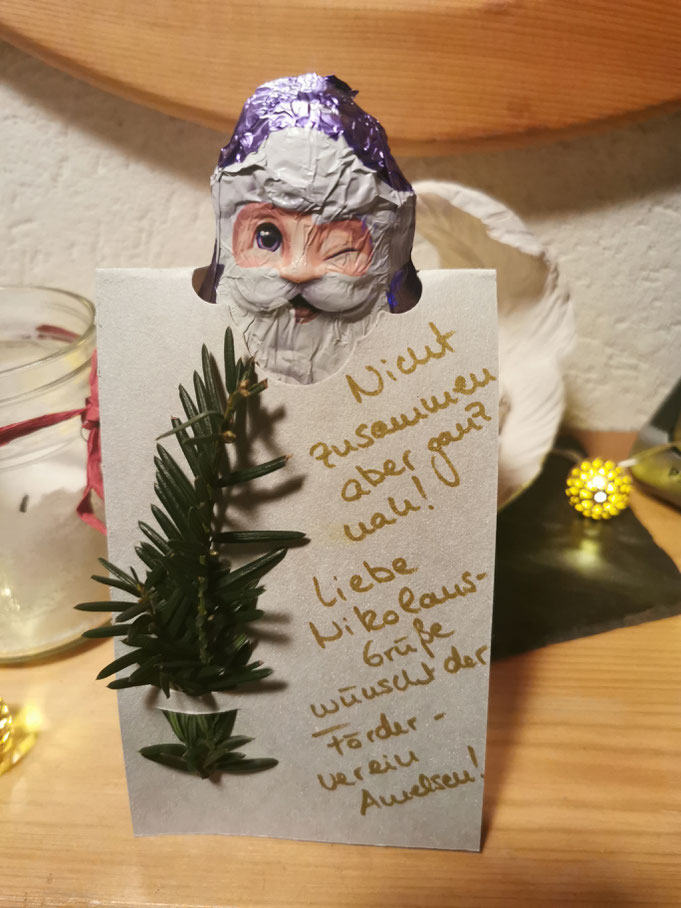 Nicht
zusammen
aber ganz
nah!
Liebe
Nikolaus-
Grüße
wünscht der
Förder-
verein
Amelsen!